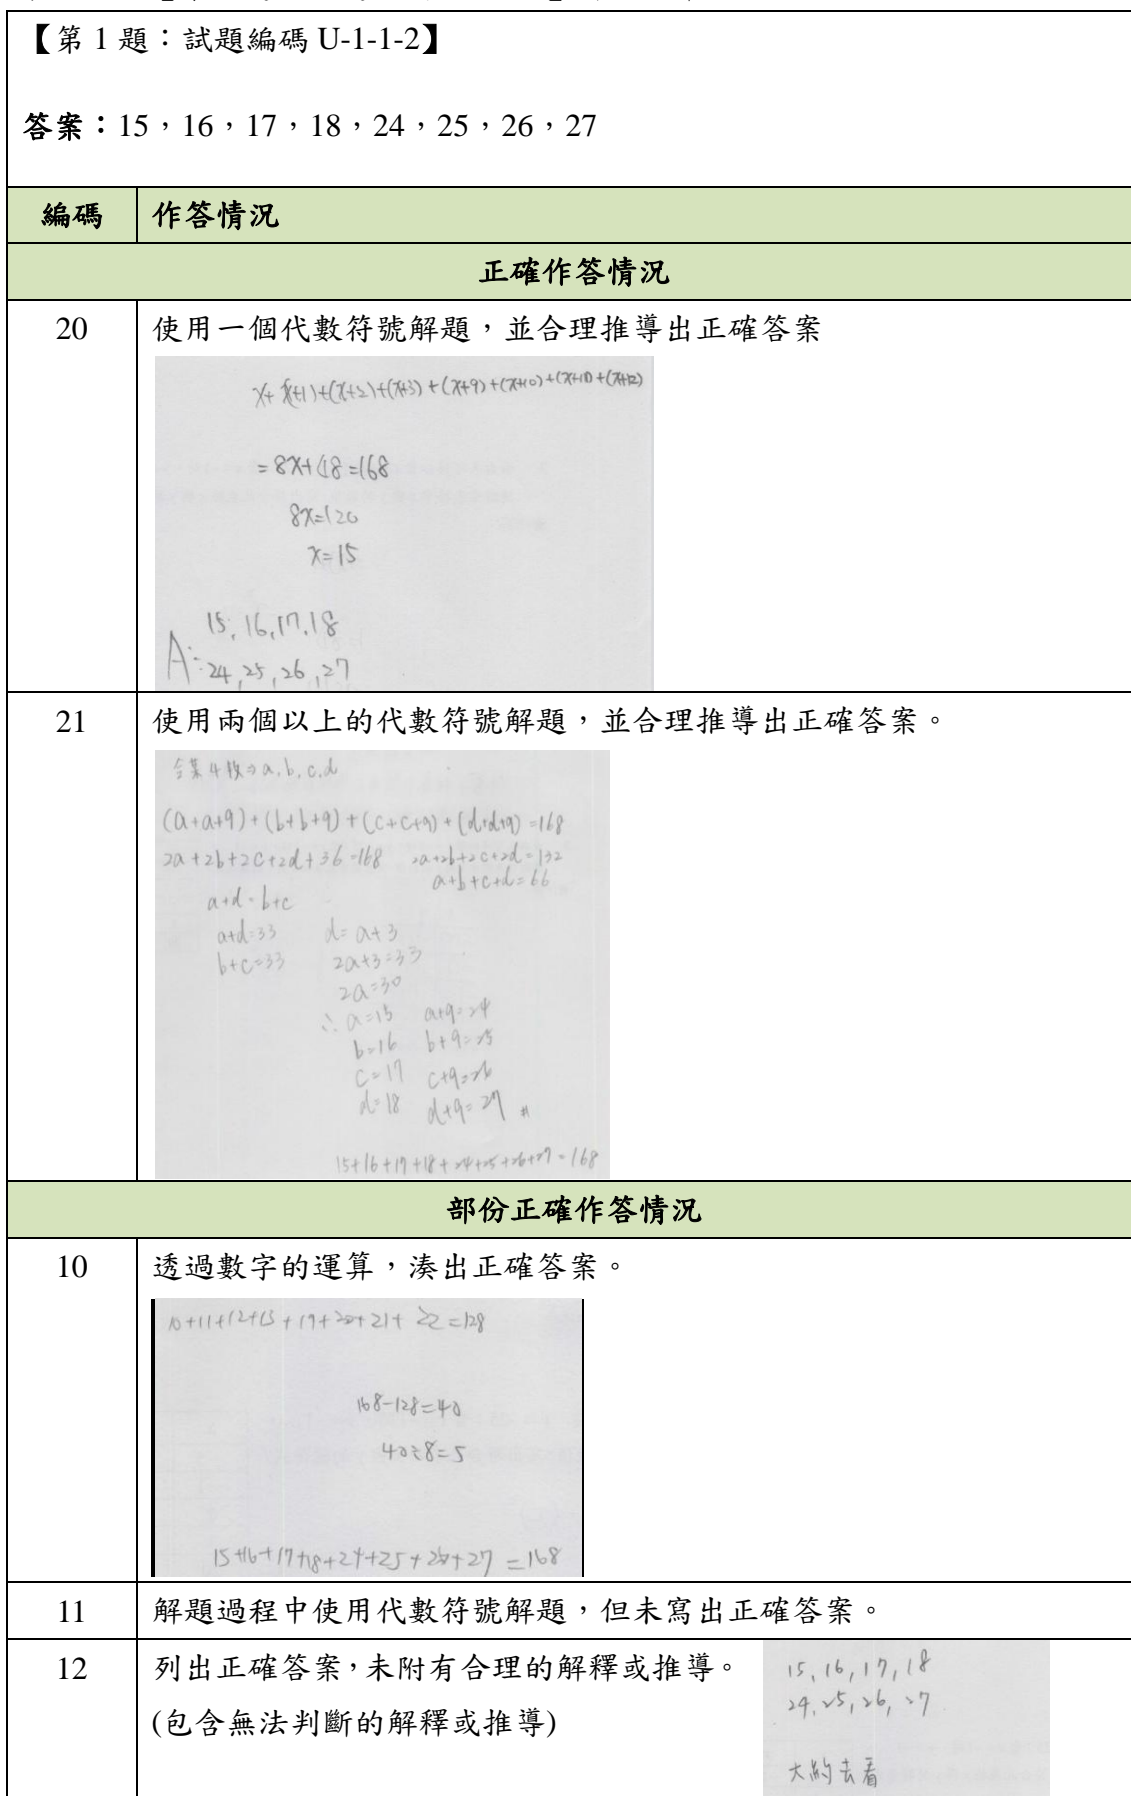 【第 1 題：試題編碼 U-1-1-2】
答案：15，16，17，18，24，25，26，27
編碼 作答情況
正確作答情況
20 使用一個代數符號解題，並合理推導出正確答案
x+(x+1)+(x+2)+(x+3)+(x+9)+(x+10)+(x+11)+(x+12)
=8x+48=168
8x=120
x=15
15,16,17,18
A:24,25,26,27
21 使用兩個以上的代數符號解題，並合理推導出正確答案。
4 a,b,c,d
(a+a+9)+(b+b+9)+(c+c+9)+(d+d+9)=168
2a+2b+2c+2d+36=168 2a+2b+2c+2d=132
a+b+c+d=66
a+d=b+c
a+d=33 d=a+3
b+c=33 2a+3=33
2a=30
∴a=15 a+9=24
b=16 b+9=25
c=17 c+9=26
d=18 d+9=27 #
15+16+17+18+24+25+26+27=168
部份正確作答情況
10 透過數字的運算，湊出正確答案。
10+11+12+13+19+20+21+22=128
168-128=40
40÷8=5
15+16+17+18+24+25+26+27=168
11 解題過程中使用代數符號解題，但未寫出正確答案。
12 列出正確答案，未附有合理的解釋或推導。
(包含無法判斷的解釋或推導)
15,16,17,18
24,25,26,27
大約去看